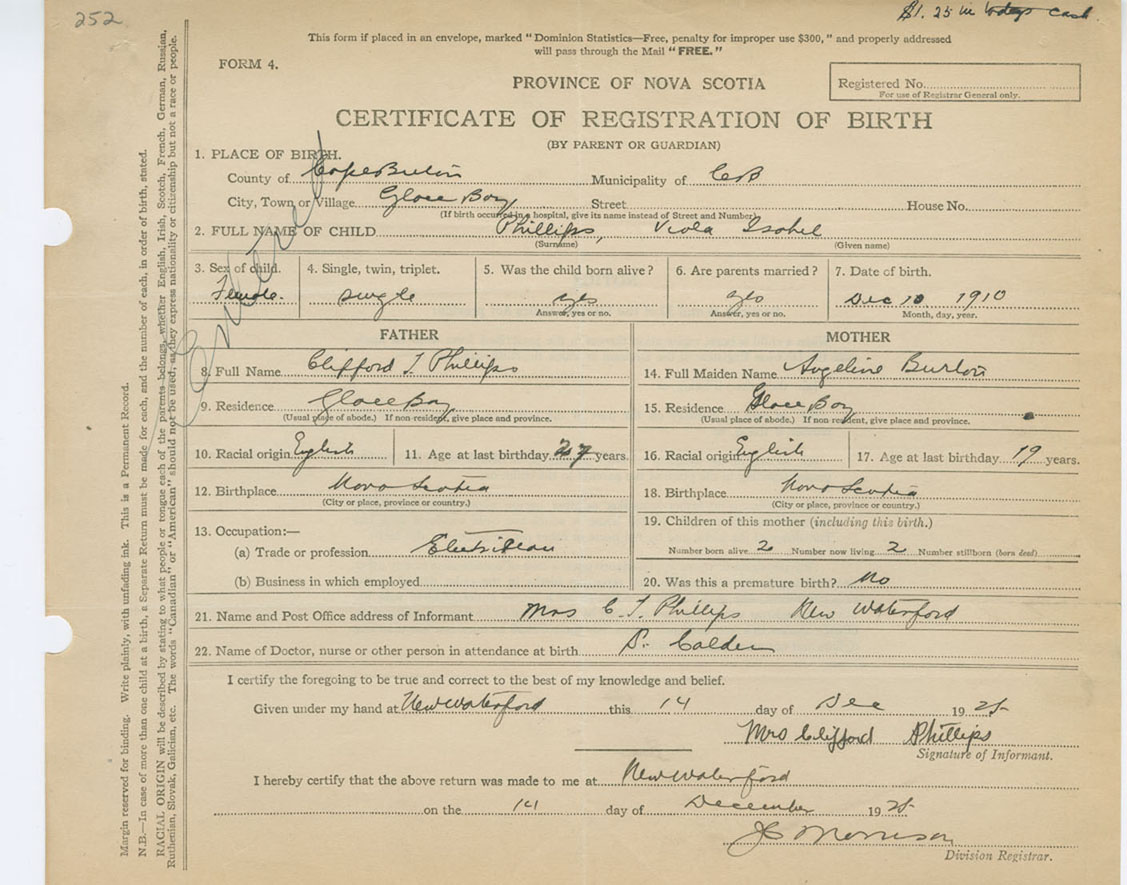 252
$1.25 in cash
This form if placed in an envelope, marked "Dominion Statistics—Free, penalty for improper use $300," and properly addressed
will pass through the Mail "FREE."
FORM 4.
PROVINCE OF NOVA SCOTIA
Registered No.
For use of Registrar General only.
CERTIFICATE OF REGISTRATION OF BIRTH
(BY PARENT OR GUARDIAN)
1. PLACE OF BIRTH.
County of Cape Breton Municipality of C B
City, Town or Village Glace Bay Street House No.
(If birth occurred in a hospital, give its name instead of Street and Number)
2. FULL NAME OF CHILD Phillips, Viola Isobel
(Surname) (Given name)
3. Sex of child. 4. Single, twin, triplet. 5. Was the child born alive? 6. Are parents married? 7. Date of birth.
Female. single yes yes Dec 10 1910
Answer, yes or no. Answer, yes or no. Month, day, year.
Entered
FATHER
8. Full Name Clifford T Phillips
9. Residence Glace Bay
(Usual place of abode.) If non-resident, give place and province.
10. Racial origin English 11. Age at last birthday 27 years.
12. Birthplace Nova Scotia
(City or place, province or country.)
13. Occupation:—
(a) Trade or profession Electrician
(b) Business in which employed
MOTHER
14. Full Maiden Name Angeline Burton
15. Residence Glace Bay
(Usual place of abode.) If non resident, give place and province.
16. Racial origin English 17. Age at last birthday 19 years.
18. Birthplace Nova Scotia
(City or place, province or country.)
19. Children of this mother (including this birth.)
Number born alive 2 Number now living 2 Number stillborn (born dead)
20. Was this a premature birth? No
21. Name and Post Office address of Informant Mrs C. T. Phillips New Waterford
22. Name of Doctor, nurse or other person in attendance at birth D. Calder
I certify the foregoing to be true and correct to the best of my knowledge and belief.
Given under my hand at New Waterford this 14 day of Dec 19
Mrs Clifford Phillips
Signature of Informant.
I hereby certify that the above return was made to me at New Waterford
on the 14 day of December 19
J C Morrison
Division Registrar.
Margin reserved for binding. Write plainly, with unfading ink. This is a Permanent Record.
N.B.—In case of more than one child at a birth, a Separate Return must be made for each, and the number of each, in order of birth, stated.
RACIAL ORIGIN will be described by stating to what people or tongue each of the parents belongs, whether English, Irish, Scotch, French, German, Russian,
Ruthenian, Slovak, Galician, etc. The words "Canadian" or "American" should not be used, as they express nationality or citizenship but not a race or people.